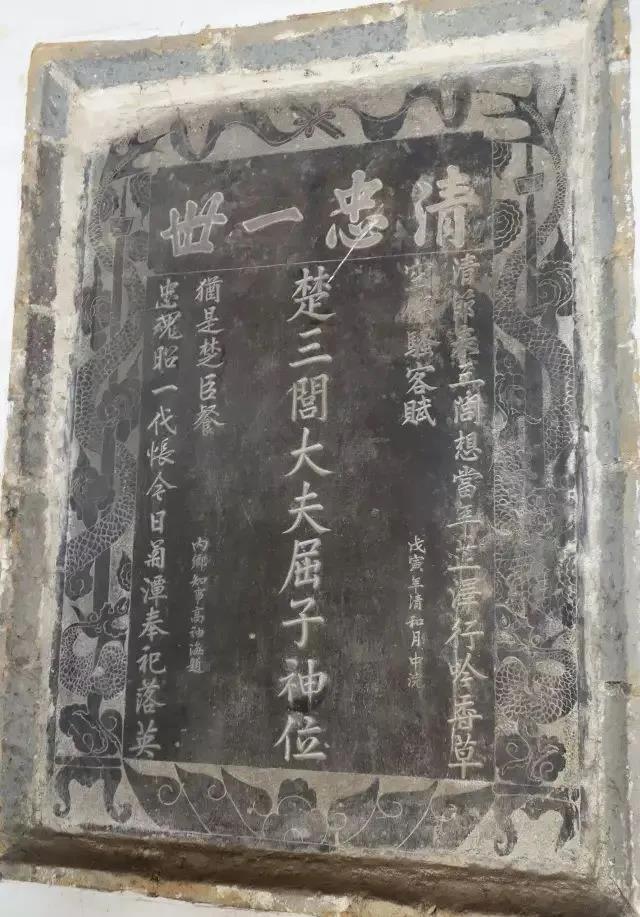 清忠一世
清節三閭想當年澤行吟香草
騷客賦
戊寅年清和月中浣
楚三閭大夫屈子神位
猶是楚臣餐
內鄉知事高海題
忠魂昭一代悵今日菊潭奉祀落英